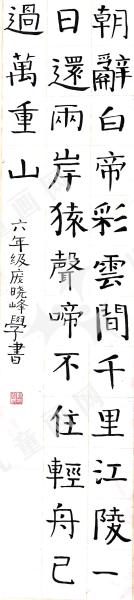 朝辭白帝彩雲間千里江陵一
日還兩岸猿聲啼不住輕舟已
過萬重山
六年级庞晓峰學書